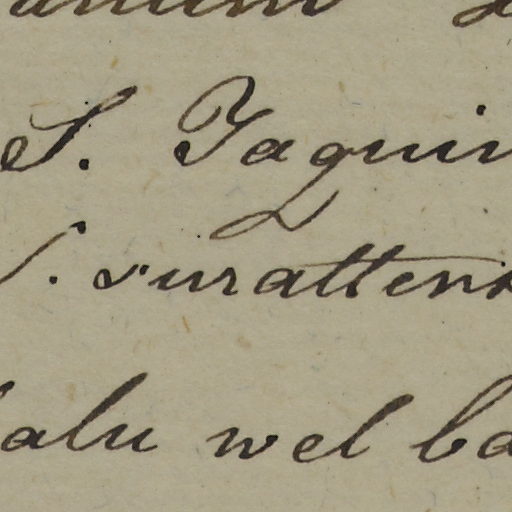 S. Jaquin
S. surattens
alu wel ba